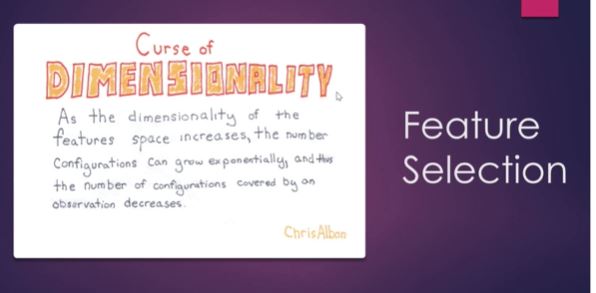 Curse of
DIMENSIONALITY
As the dimensionality of the
features space increases, the number
Configurations can grow exponentially, and thus
the number of configurations covered by an
observation decreases.
Chris Albon
Feature
Selection